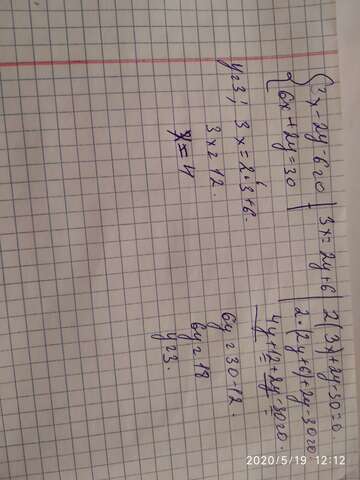 3x-2y-6=0 | 3x=2y+6 | 2(3x)+2y-30=0
6x+2y=30 | 2·(2y+6)+2y-30=0
4y+12+2y-30=0.
y=3; 3x=2·3+6.
6y=30-12.
3x=12.
6y=18
x=4
y=3.
2020/5/19 12:12